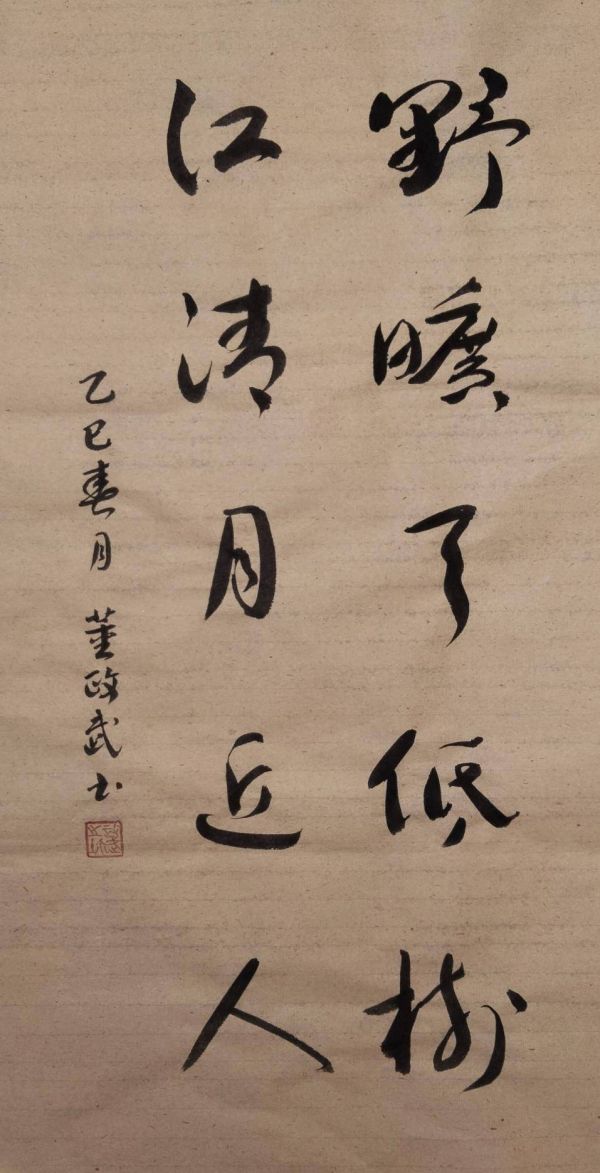 野曠天低樹
江清月近人
乙巳春月 董政武书